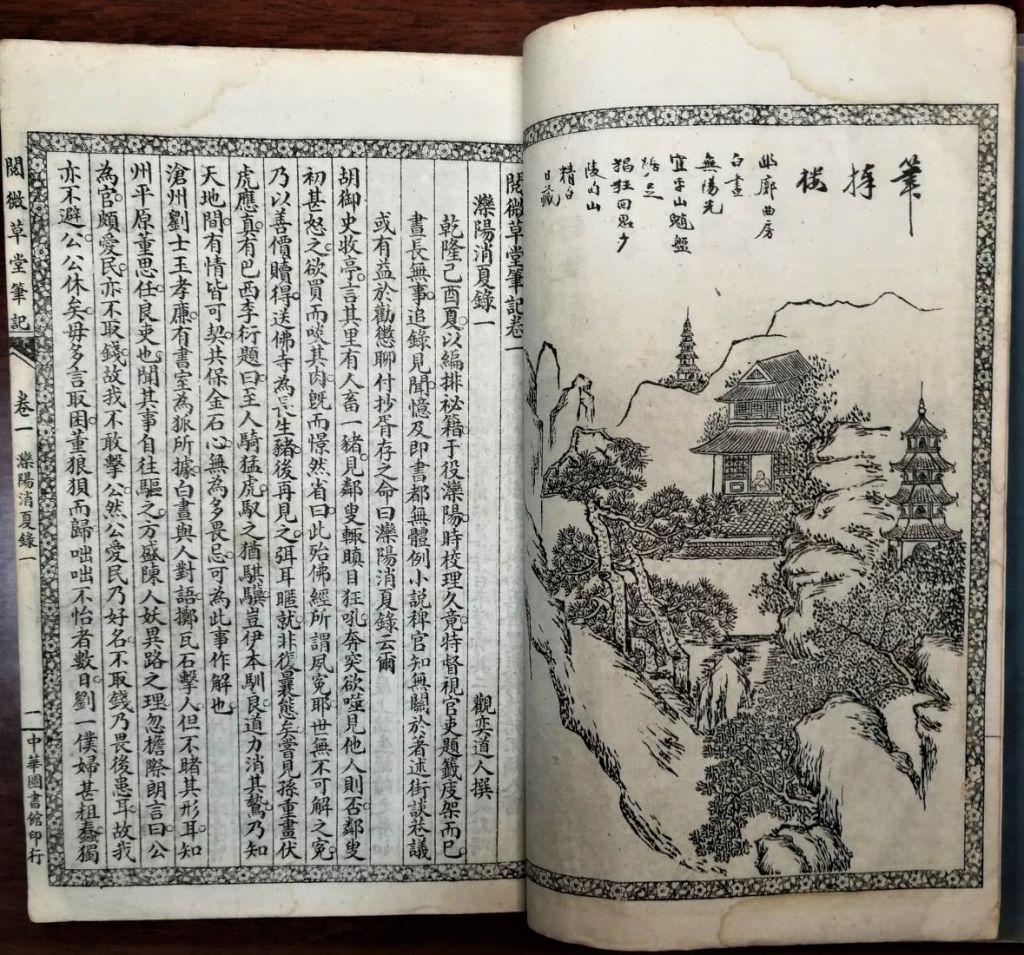 筆
幽廊曲房
白晝
無陽光
宜乎山魈盤
猖狂回思夕
精白
日藏
閱微草堂筆記卷一
灤陽消夏錄一
觀奕道人撰
乾隆己酉夏以編排祕籍于役灤陽時校理久竟特督視官吏題籤庋架而已
晝長無事追錄見聞憶及即書都無體例小說稗官知無關於著述街談巷議
或有益於勸懲聊付抄胥存之命曰灤陽消夏錄云爾
胡御史收亭言其里有人畜一豬見鄰叟輒瞋目狂吼奔突欲噬見他人則否鄰叟
初甚怒之欲買而啖其肉旣而憬然省曰此殆佛經所謂夙寃耶世無不可解之寃
乃以善價贖得送佛寺為長生豬後再見之弭耳暱就非復曩態矣嘗見孫重畫伏
虎應真有巴西李衍題曰至人騎猛虎馭之猶騏驥豈伊本馴良道力消其鷙乃知
天地間有情皆可契共保金石心無為多畏忌可為此事作解也
滄州劉士玉孝廉有書室為狐所據白晝與人對語擲瓦石擊人但不睹其形耳知
州平原董思任良吏也聞其事自往驅之方盛陳人妖異路之理忽檐際朗言曰公
為官頗愛民亦不取錢故我不敢擊公然公愛民乃好名不取錢乃畏後患耳故我
亦不避公公休矣毋多言取困董狼狽而歸咄咄不怡者數日劉一僕婦甚粗蠢獨
閱微草堂筆記
卷一
灤陽消夏錄一
一
中華圖書館印行